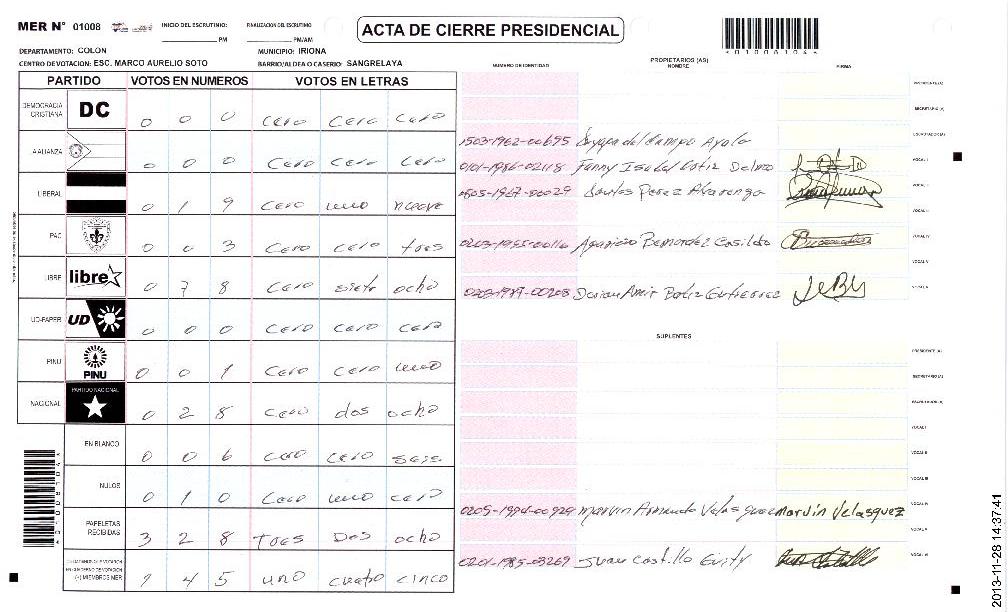 MER N° 01008 INICIO DEL ESCRUTINIO: PM FINALIZACION DEL ESCRUTINIO PM/AM
ACTA DE CIERRE PRESIDENCIAL
DEPARTAMENTO: COLON MUNICIPIO: IRIONA
CENTRO DE VOTACION: ESC. MARCO AURELIO SOTO BARRIO/ALDEA O CASERIO: SANGRELAYA
PARTIDO VOTOS EN NUMEROS VOTOS EN LETRAS
DEMOCRACIA CRISTIANA DC 0 0 0 cero cero cero
ALIANZA 0 0 0 cero cero cero
LIBERAL 0 1 9 cero uno nueve
PAC 0 0 3 cero cero tres
LIBRE libre 0 7 8 cero siete ocho
UD-FAPER UD 0 0 0 cero cero cero
PINU PINU 0 0 1 cero cero uno
NACIONAL PARTIDO NACIONAL 0 2 8 cero dos ocho
EN BLANCO 0 0 6 cero cero seis
NULOS 0 1 0 cero uno cero
PAPELETAS RECIBIDAS 3 2 8 Tres Dos ocho
CIUDADANOS DE VOTACION
EN CUADERNO DE VOTACION
(+) MIEMBROS MER 1 4 5 uno cuatro cinco
NUMERO DE IDENTIDAD PROPIETARIOS (AS) NOMBRE FIRMA
PRESIDENTE (A)
SECRETARIO (A)
1503-1962-00695 del Campo Ayala ESCRUTADOR (A)
0101-1986-02418 Fanny Isabel Batiz Delmo VOCAL I
1505-1967-00029 Santos Perez Alvarenga VOCAL II
VOCAL III
Aparicio Bernardez Casildo VOCAL IV
VOCAL V
0202-1989-00208 Dorian Amir Batiz Gutierrez
SUPLENTES
PRESIDENTE (A)
SECRETARIO (A)
ESCRUTADOR (A)
VOCAL I
VOCAL II
VOCAL III
0209-1994-00929 Marvin Armando Velasquez Marvin Velasquez VOCAL IV
VOCAL V
0201-1985-03269 Juan Castillo Guity
2013-11-28 14:37:41